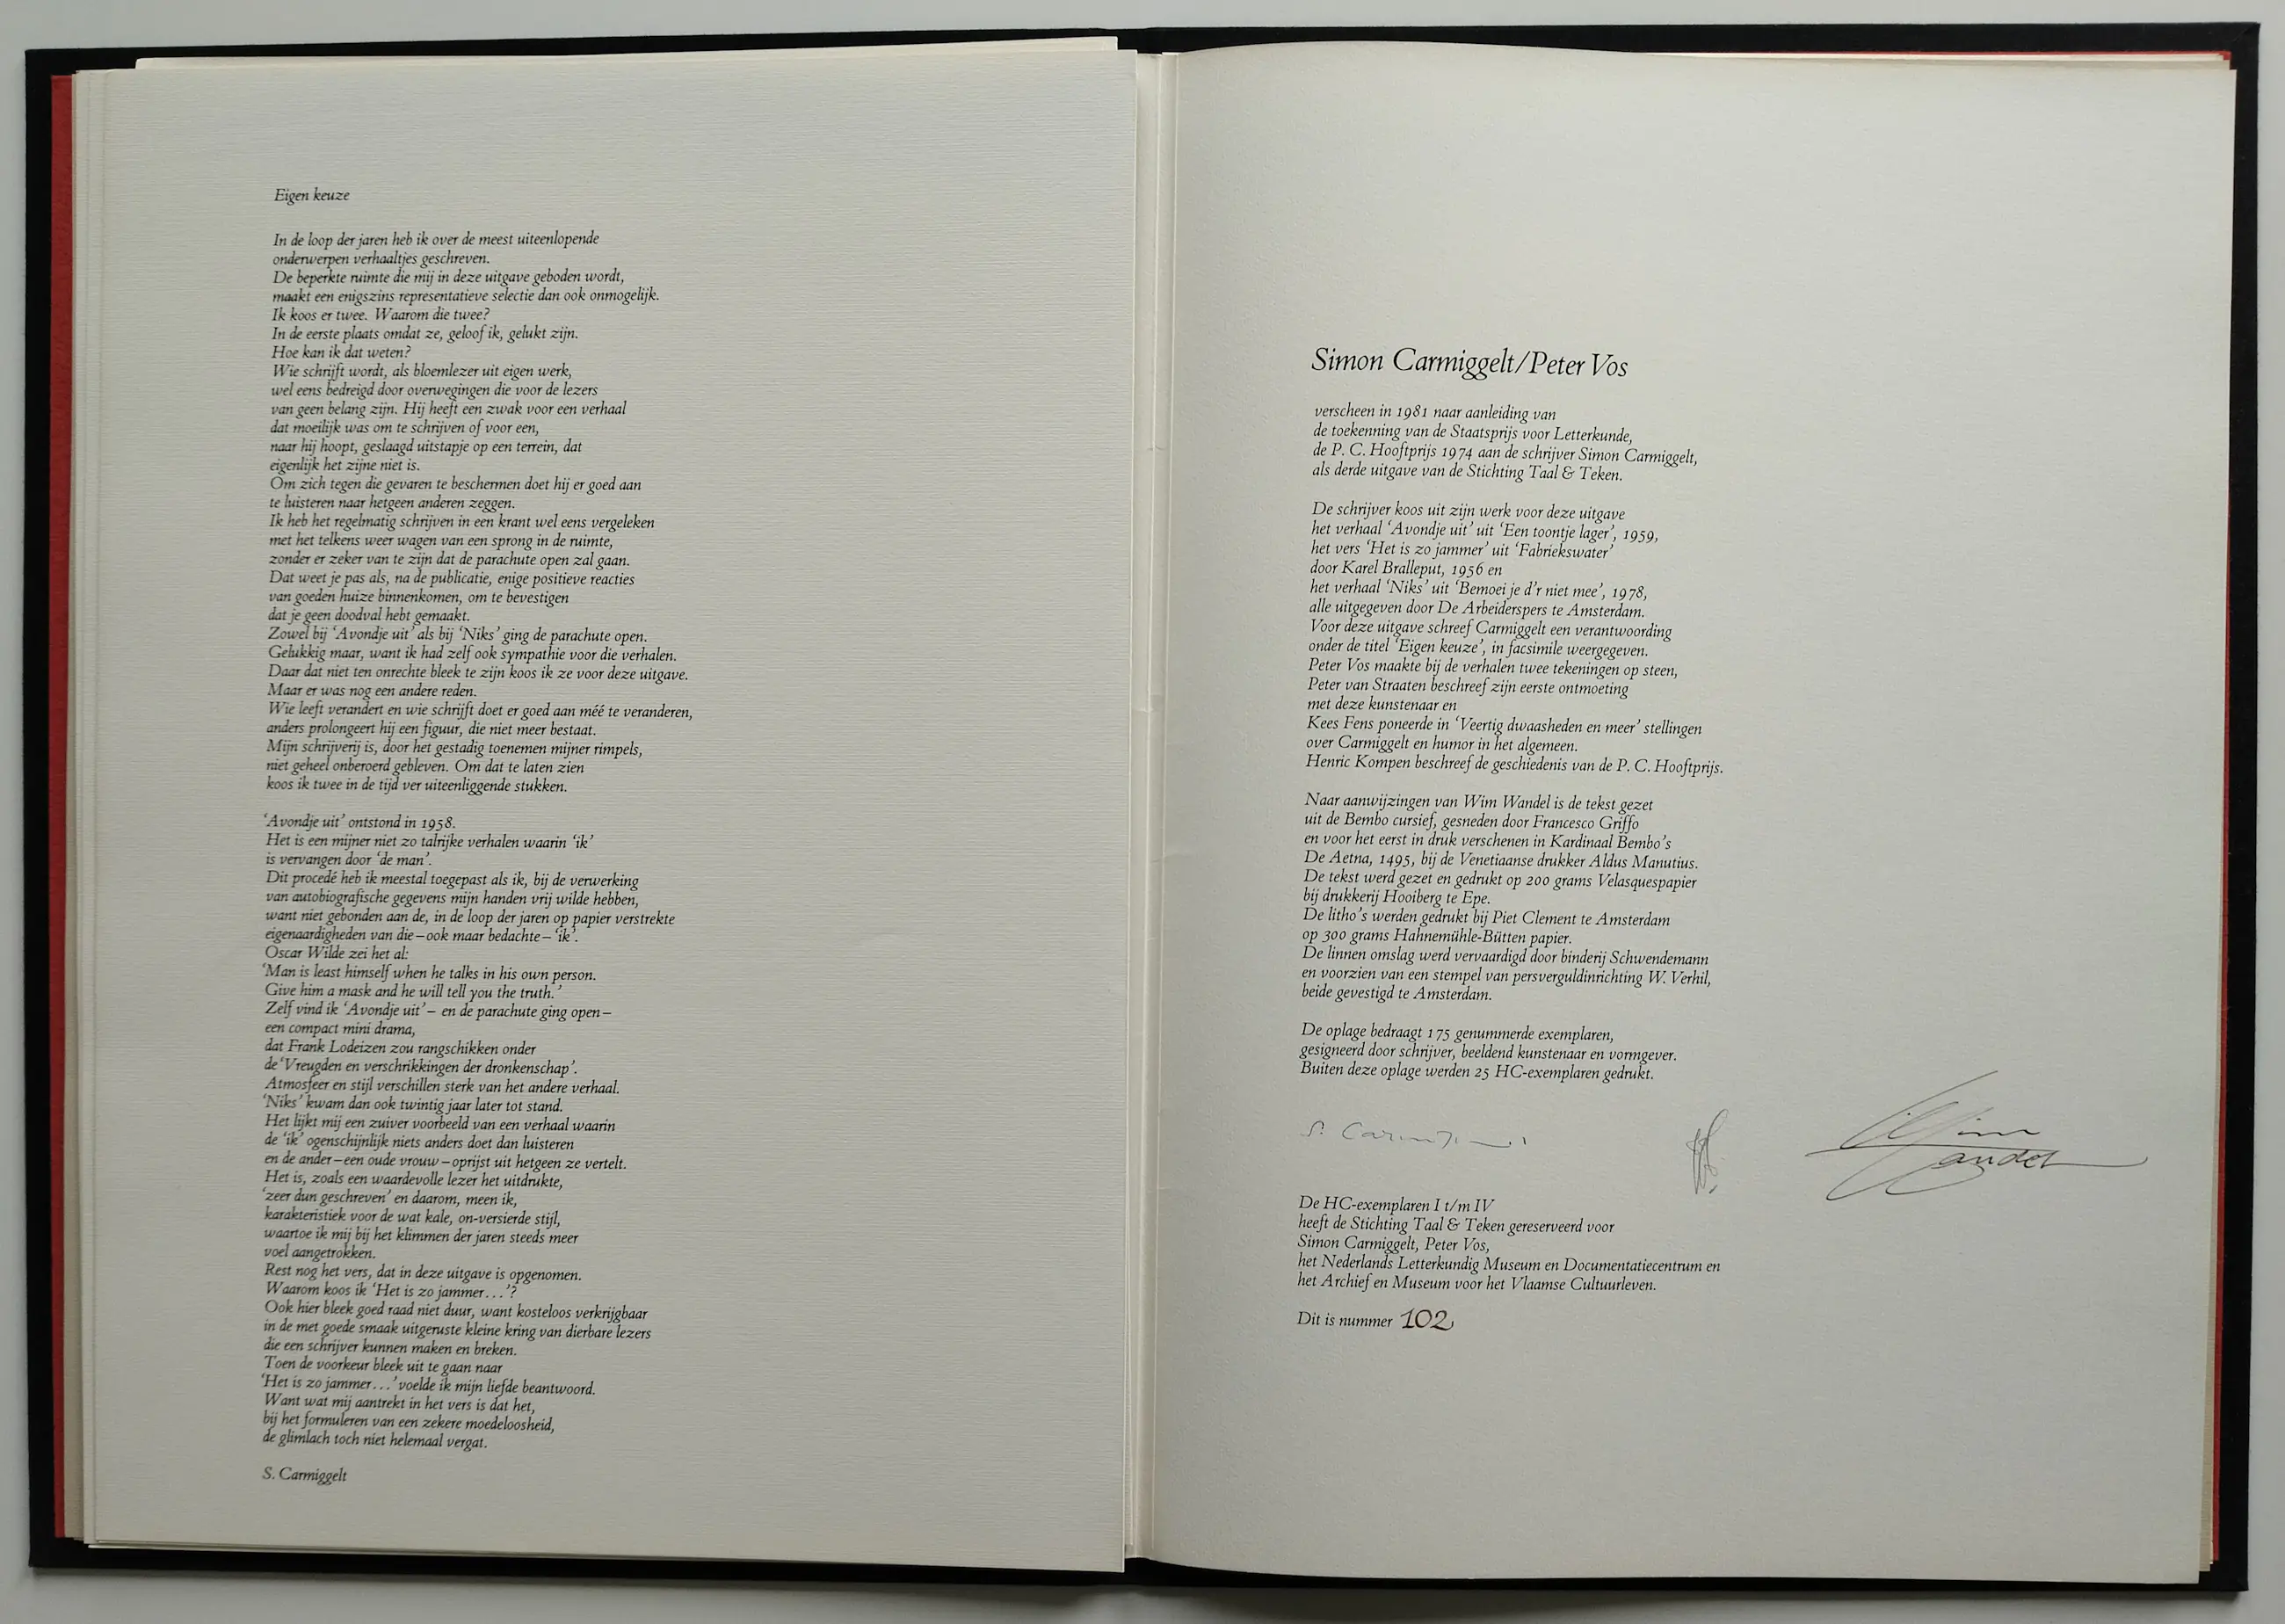 Eigen keuze
In de loop der jaren heb ik over de meest uiteenlopende
onderwerpen verhaaltjes geschreven.
De beperkte ruimte die mij in deze uitgave geboden wordt,
maakt een enigszins representatieve selectie dan ook onmogelijk.
Ik koos er twee. Waarom die twee?
In de eerste plaats omdat ze, geloof ik, gelukt zijn.
Hoe kan ik dat weten?
Wie schrijft wordt, als bloemlezer uit eigen werk,
wel eens bedreigd door overwegingen die voor de lezers
van geen belang zijn. Hij heeft een zwak voor een verhaal
dat moeilijk was om te schrijven of voor een,
naar hij hoopt, geslaagd uitstapje op een terrein, dat
eigenlijk het zijne niet is.
Om zich tegen die gevaren te beschermen doet hij er goed aan
te luisteren naar hetgeen anderen zeggen.
Ik heb het regelmatig schrijven in een krant wel eens vergeleken
met het telkens weer wagen van een sprong in de ruimte,
zonder er zeker van te zijn dat de parachute open zal gaan.
Dat weet je pas als, na de publicatie, enige positieve reacties
van goeden huize binnenkomen, om te bevestigen
dat je geen doodval hebt gemaakt.
Zowel bij ‘Avondje uit’ als bij ‘Niks’ ging de parachute open.
Gelukkig maar, want ik had zelf ook sympathie voor die verhalen.
Daar dat niet ten onrechte bleek te zijn koos ik ze voor deze uitgave.
Maar er was nog een andere reden.
Wie leeft verandert en wie schrijft doet er goed aan méé te veranderen,
anders prolongeert hij een figuur, die niet meer bestaat.
Mijn schrijverij is, door het gestadig toenemen mijner rimpels,
niet geheel onberoerd gebleven. Om dat te laten zien
koos ik twee in de tijd ver uiteenliggende stukken.
‘Avondje uit’ ontstond in 1958.
Het is een mijner niet zo talrijke verhalen waarin ‘ik’
is vervangen door ‘de man’.
Dit procedé heb ik meestal toegepast als ik, bij de verwerking
van autobiografische gegevens mijn handen vrij wilde hebben,
want niet gebonden aan de, in de loop der jaren op papier verstrekte
eigenaardigheden van die – ook maar bedachte – ‘ik’.
Oscar Wilde zei het al:
‘Man is least himself when he talks in his own person.
Give him a mask and he will tell you the truth.’
Zelf vind ik ‘Avondje uit’ – en de parachute ging open –
een compact mini drama,
dat Frank Lodeizen zou rangschikken onder
de ‘Vreugden en verschrikkingen der dronkenschap’.
Atmosfeer en stijl verschillen sterk van het andere verhaal.
‘Niks’ kwam dan ook twintig jaar later tot stand.
Het lijkt mij een zuiver voorbeeld van een verhaal waarin
de ‘ik’ ogenschijnlijk niets anders doet dan luisteren
en de ander – een oude vrouw – oprijst uit hetgeen ze vertelt.
Het is, zoals een waardevolle lezer het uitdrukte,
‘zeer dun geschreven’ en daarom, meen ik,
karakteristiek voor de wat kale, on-versierde stijl,
waartoe ik mij bij het klimmen der jaren steeds meer
voel aangetrokken.
Rest nog het vers, dat in deze uitgave is opgenomen.
Waarom koos ik ‘Het is zo jammer...’?
Ook hier bleek goed raad niet duur, want kosteloos verkrijgbaar
in de met goede smaak uitgeruste kleine kring van dierbare lezers
die een schrijver kunnen maken en breken.
Toen de voorkeur bleek uit te gaan naar
‘Het is zo jammer...’ voelde ik mijn liefde beantwoord.
Want wat mij aantrekt in het vers is dat het,
bij het formuleren van een zekere moedeloosheid,
de glimlach toch niet helemaal vergat.
S. Carmiggelt
Simon Carmiggelt/Peter Vos
verscheen in 1981 naar aanleiding van
de toekenning van de Staatsprijs voor Letterkunde,
de P. C. Hooftprijs 1974 aan de schrijver Simon Carmiggelt,
als derde uitgave van de Stichting Taal & Teken.
De schrijver koos uit zijn werk voor deze uitgave
het verhaal ‘Avondje uit’ uit ‘Een toontje lager’, 1959,
het vers ‘Het is zo jammer’ uit ‘Fabriekswater’
door Karel Bralleput, 1956 en
het verhaal ‘Niks’ uit ‘Bemoei je d’r niet mee’, 1978,
alle uitgegeven door De Arbeiderspers te Amsterdam.
Voor deze uitgave schreef Carmiggelt een verantwoording
onder de titel ‘Eigen keuze’, in facsimile weergegeven.
Peter Vos maakte bij de verhalen twee tekeningen op steen,
Peter van Straaten beschreef zijn eerste ontmoeting
met deze kunstenaar en
Kees Fens poneerde in ‘Veertig dwaasheden en meer’ stellingen
over Carmiggelt en humor in het algemeen.
Henric Kompen beschreef de geschiedenis van de P. C. Hooftprijs.
Naar aanwijzingen van Wim Wandel is de tekst gezet
uit de Bembo cursief, gesneden door Francesco Griffo
en voor het eerst in druk verschenen in Kardinaal Bembo’s
De Aetna, 1495, bij de Venetiaanse drukker Aldus Manutius.
De tekst werd gezet en gedrukt op 200 grams Velasquespapier
bij drukkerij Hooiberg te Epe.
De litho’s werden gedrukt bij Piet Clement te Amsterdam
op 300 grams Hahnemühle-Bütten papier.
De linnen omslag werd vervaardigd door binderij Schwendemann
en voorzien van een stempel van persverguldinrichting W. Verhil,
beide gevestigd te Amsterdam.
De oplage bedraagt 175 genummerde exemplaren,
gesigneerd door schrijver, beeldend kunstenaar en vormgever.
Buiten deze oplage werden 25 HC-exemplaren gedrukt.
S. Carmiggelt
Wim Wandel
De HC-exemplaren I t/m IV
heeft de Stichting Taal & Teken gereserveerd voor
Simon Carmiggelt, Peter Vos,
het Nederlands Letterkundig Museum en Documentatiecentrum en
het Archief en Museum voor het Vlaamse Cultuurleven.
Dit is nummer 102